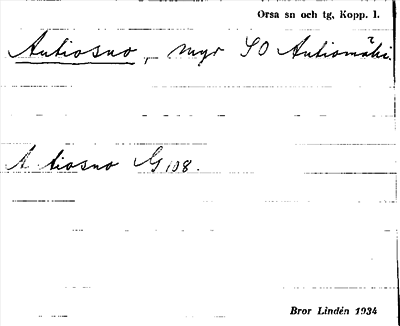 Orsa sn och tg, Kopp. l.
Autiosuo, myr SO Autiomäki.
A tiosuo G 108.
Bror Lindén 1934